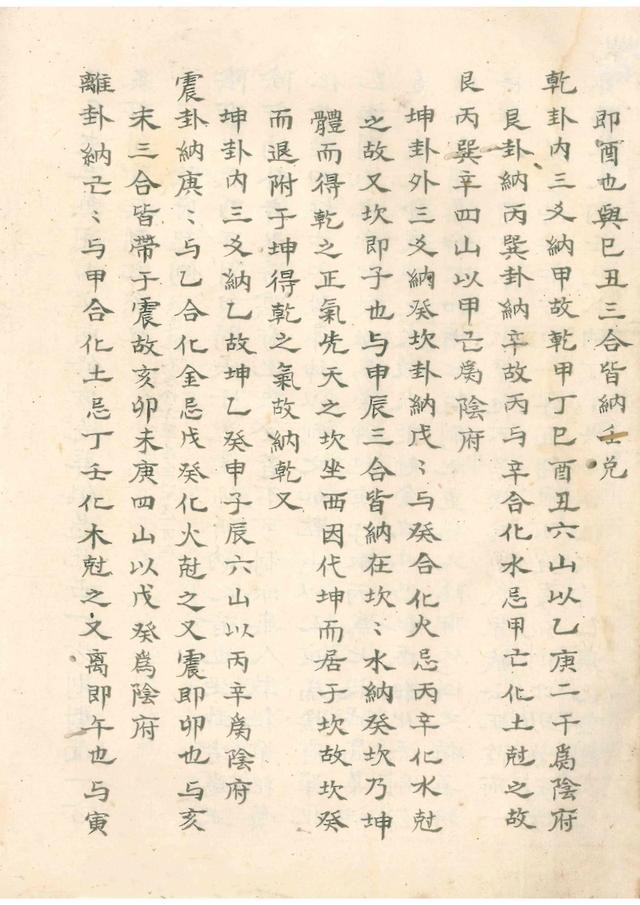 即酉也與巳丑三合皆納壬兑
乾卦内三爻納甲故乾甲丁巳酉丑六山以乙庚二干爲陰府
艮卦納丙巽卦納辛故丙与辛合化水忌甲亡化土尅之故
艮丙巽辛四山以甲亡爲陰府
坤卦外三爻納癸坎卦納戊〻与癸合化火忌丙辛化水尅
之故又坎即子也与申辰三合皆納在坎〻水納癸坎乃坤
體而得乾之正氣先天之坎坐西因代坤而居于坎故坎癸
而退附于坤得乾之氣故納乾又
坤卦内三爻納乙故坤乙癸申子辰六山以丙辛爲陰府
震卦納庚〻与乙合化金忌戊癸化火尅之又震即卯也与亥
未三合皆帶于震故亥卯未庚四山以戊癸爲陰府
離卦納亡〻与甲合化土忌丁壬化木尅之又离即午也与寅